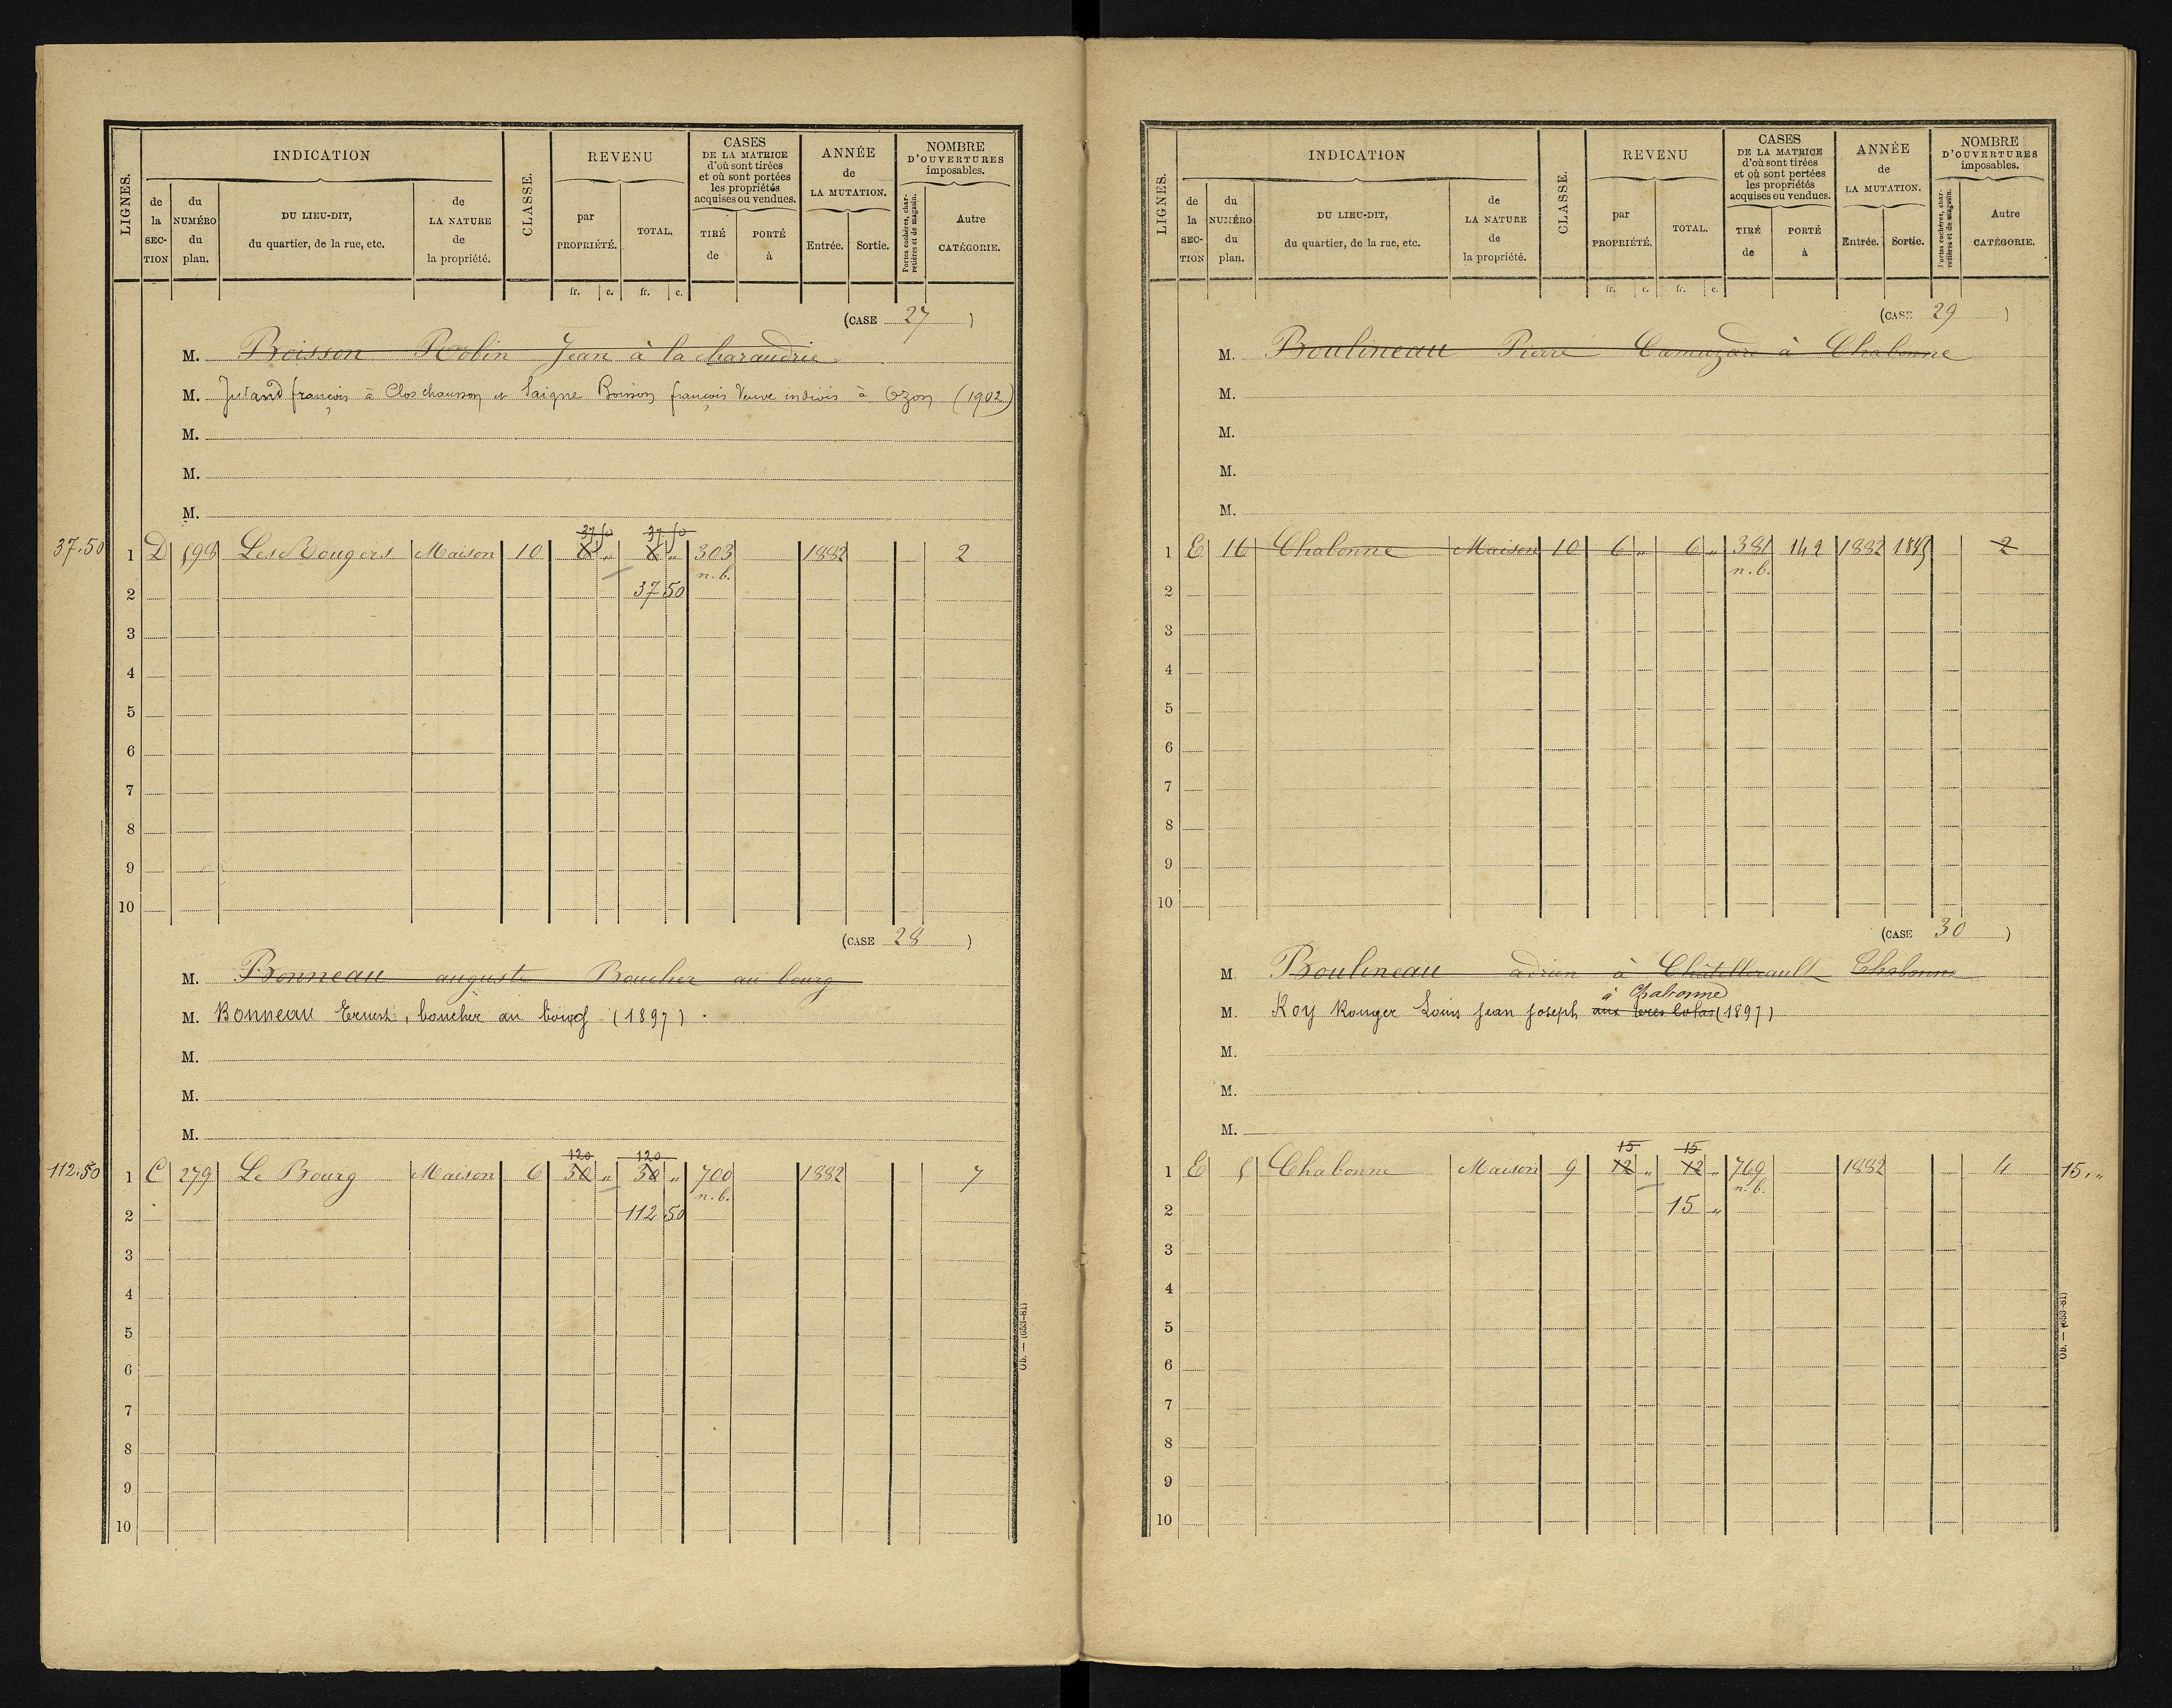 LIGNES.
INDICATION
de la SEC-TION
du NUMÉRO du plan.
DU LIEU-DIT, du quartier, de la rue, etc.
de LA NATURE de la propriété.
CLASSE.
REVENU
par PROPRIÉTÉ.
TOTAL.
CASES DE LA MATRICE d'où sont tirées et où sont portées les propriétés acquises ou vendues.
TIRÉ de
PORTÉ à
ANNÉE de LA MUTATION.
Entrée.
Sortie.
NOMBRE D'OUVERTURES imposables.
Portes cochères, charretières et de magasin.
Autre CATÉGORIE.
fr. c. fr. c.
(CASE 27 )
M. Boisson Robin Jean à la charaudrie
M. Jutand françois à Clos chausson et Saigne Boisson françois Veuve indivis à Ozon (1902)
M.
M.
M.
37,50 37,50
37.50 1 D 598 Les Rougers Maison 10 6 " 6 " 303 1882 2
n.b.
2 37 50
3
4
5
6
7
8
9
10
(CASE 28 )
M. Bonneau auguste Boucher au bourg
M. Bonneau Ernest, boucher au bourg (1897).
M.
M.
M.
120 120
112.50 1 C 279 Le Bourg Maison 6 30 " 30 " 700 1882 7
n.b.
2 112 50
3
4
5
6
7
8
9
10
Ob. — (653-81)
LIGNES.
INDICATION
de la SEC-TION
du NUMÉRO du plan.
DU LIEU-DIT, du quartier, de la rue, etc.
de LA NATURE de la propriété.
CLASSE.
REVENU
par PROPRIÉTÉ.
TOTAL.
CASES DE LA MATRICE d'où sont tirées et où sont portées les propriétés acquises ou vendues.
TIRÉ de
PORTÉ à
ANNÉE de LA MUTATION.
Entrée.
Sortie.
NOMBRE D'OUVERTURES imposables.
Portes cochères, charretières et de magasin.
Autre CATÉGORIE.
fr. c. fr. c.
(CASE 29 )
M. Boulineau Pierre Camuzard à Chabonne
M.
M.
M.
M.
1 E 16 Chabonne Maison 10 6 " 6 " 381 142 1882 2
n.b.
2
3
4
5
6
7
8
9
10
(CASE 30 )
M. Boulineau adrien à Châtellerault Chabonne
à Chabonne
M. Roy Rouger Louis Jean Joseph aux (1897)
M.
M.
M.
15 15
1 E 5 Chabonne Maison 9 12 " 12 " 769 1882 4 15."
n.b.
2 15 "
3
4
5
6
7
8
9
10
Ob. — (653-81)